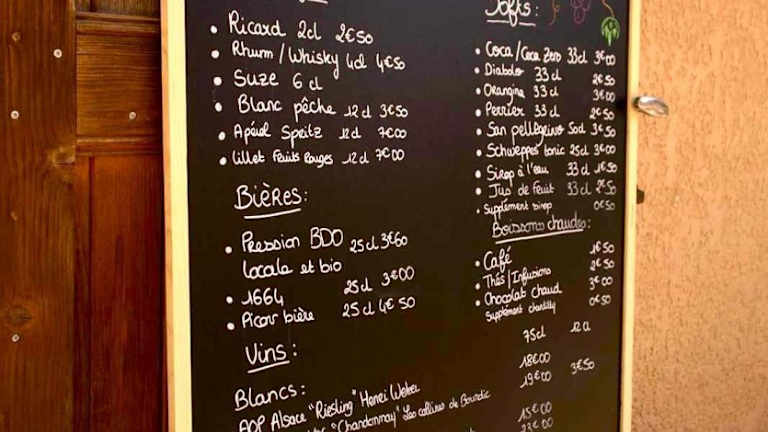 Ricard 2cl 2€50
Rhum/Whisky 4cl 4€50
Suze 6 cl
Blanc pêche 12 cl 3€50
Apérol Spritz 12 cl 7€00
Lillet Fruits Rouges 12 cl 7€00
Bières:
Pression BDO 25 cl 3€60
locale et bio
1664 25 cl 3€00
Picon bière 25 cl 4€50
Vins:
Blancs:
AOP Alsace "Riesling" Henri Weber
"Chardonnay" Les collines de Bourdic
Softs:
Coca/Coca Zero 33 cl 3€00
Diabolo 33 cl 2€50
Orangina 33 cl 3€00
Perrier 33 cl 2€50
San pellegrino 50cl 3€50
Schweppes tonic 25cl 3€00
Sirop à l'eau 33 cl 1€50
Jus de fruit 33 cl 2€50
Supplément sirop 0€50
Boissons chaudes:
Café 1€50
Thés/Infusions 2€50
Chocolat chaud 3€00
Supplément chantilly 0€50
75cl 12 cl
18€00
19€00 3€50
15€00
23€00